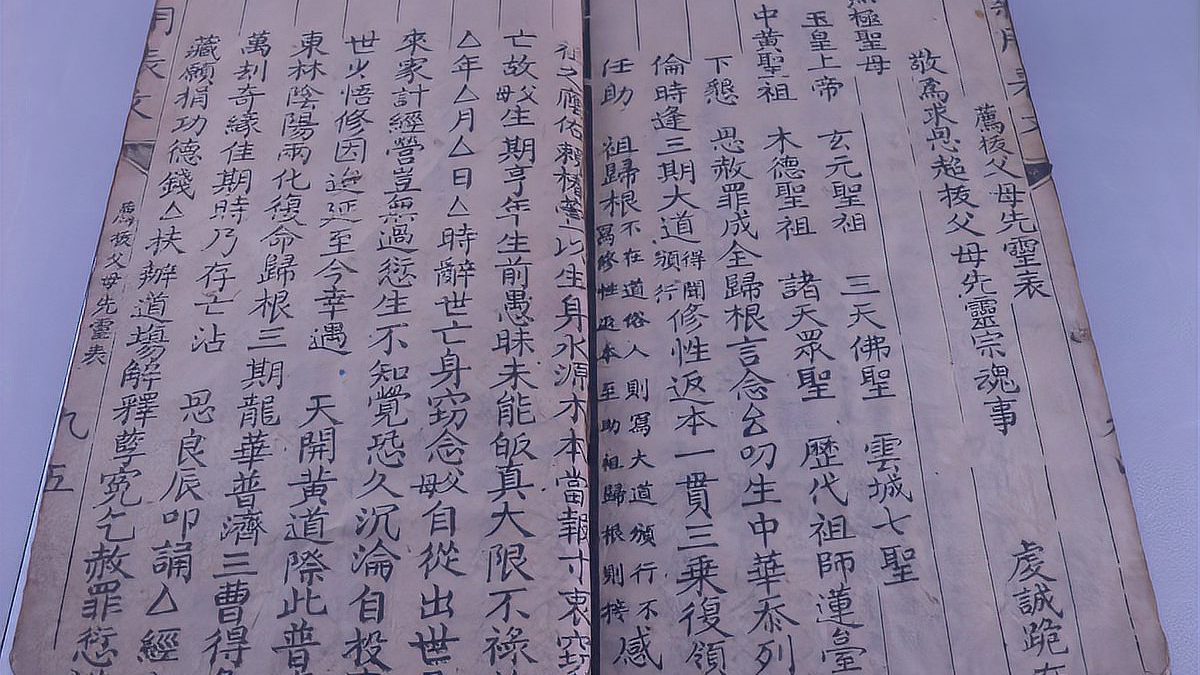 薦拔父母先靈表 虔誠跪
敬為求恩超拔父母先靈宗魂事
無極聖母
玉皇上帝 玄元聖祖 三天佛聖 雲城七聖
中黃聖祖 木德聖祖 諸天眾聖 歷代祖師蓮臺
下懇 恩赦罪成全歸根言念幺叨生中華忝列
倫時逢三期大道得聞頒行修性返本一貫三乘復領
任助 祖歸根不在道俗人則寫大道頒行不寫修性返本至助祖歸根則接感
祖之廕佑賴椿萱以生身水源木本當報寸衷竊
亡故父母生期亨年生前愚昧未能皈真大限不祿
△年△月△日△時辭世亡身竊念父母自從出世
來家計經營豈無過愆生不知覺恐久沉淪自投
世少悟修因迨延至今幸遇 天開黃道際此普
東林陰陽兩化復命歸根三期龍華普濟三曹得
萬刦奇緣佳期時乃存亡沾 恩良辰叩誦△經
藏願捐功德錢△扶辦道場解釋孽冤乞赦罪愆
薦拔父母先靈表 九五
用表文